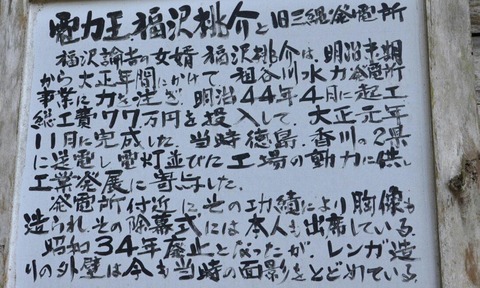 電力王福沢桃介と旧三縄発電所
福沢諭吉の女婿 福沢桃介は、明治末期
から大正年間にかけて、祖谷川水力発電所
事業に力を注ぎ、明治44年4月に起工
総工費77万円を投入して、大正元年
11月に完成した。当時徳島・香川の2県
に送電し電灯並びに工場の動力に供し
工業発展に寄与した。
発電所付近にその功績により胸像も
造られ、その除幕式には本人も出席している。
昭和34年廃止となったが、レンガ造
りの外壁は今も当時の面影をとどめている。